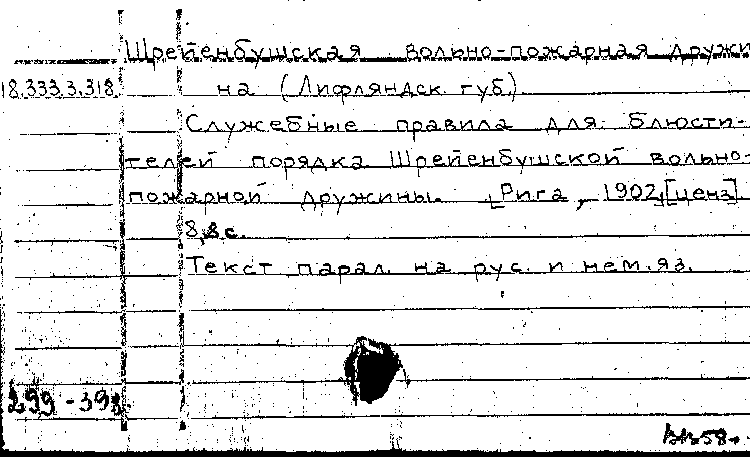 Шрейенбушская вольно-пожарная дружи
18.333.3.318. на (Лифляндск. губ.)
Служебные правила для блюсти-
телей порядка Шрейенбушской вольно-
пожарной дружины. [Рига, 1902, [ценз]
8, 8 с.
Текст парал. на рус. и нем. яз.
299-398